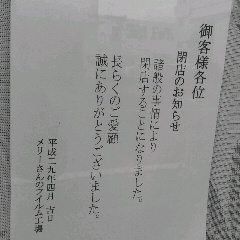 御客様各位
閉店のお知らせ
諸般の事情により
閉店することになりました。
長らくのご愛顧
誠にありがとうございました。
平成二九年四月吉日
メリーさんのフイルム工場